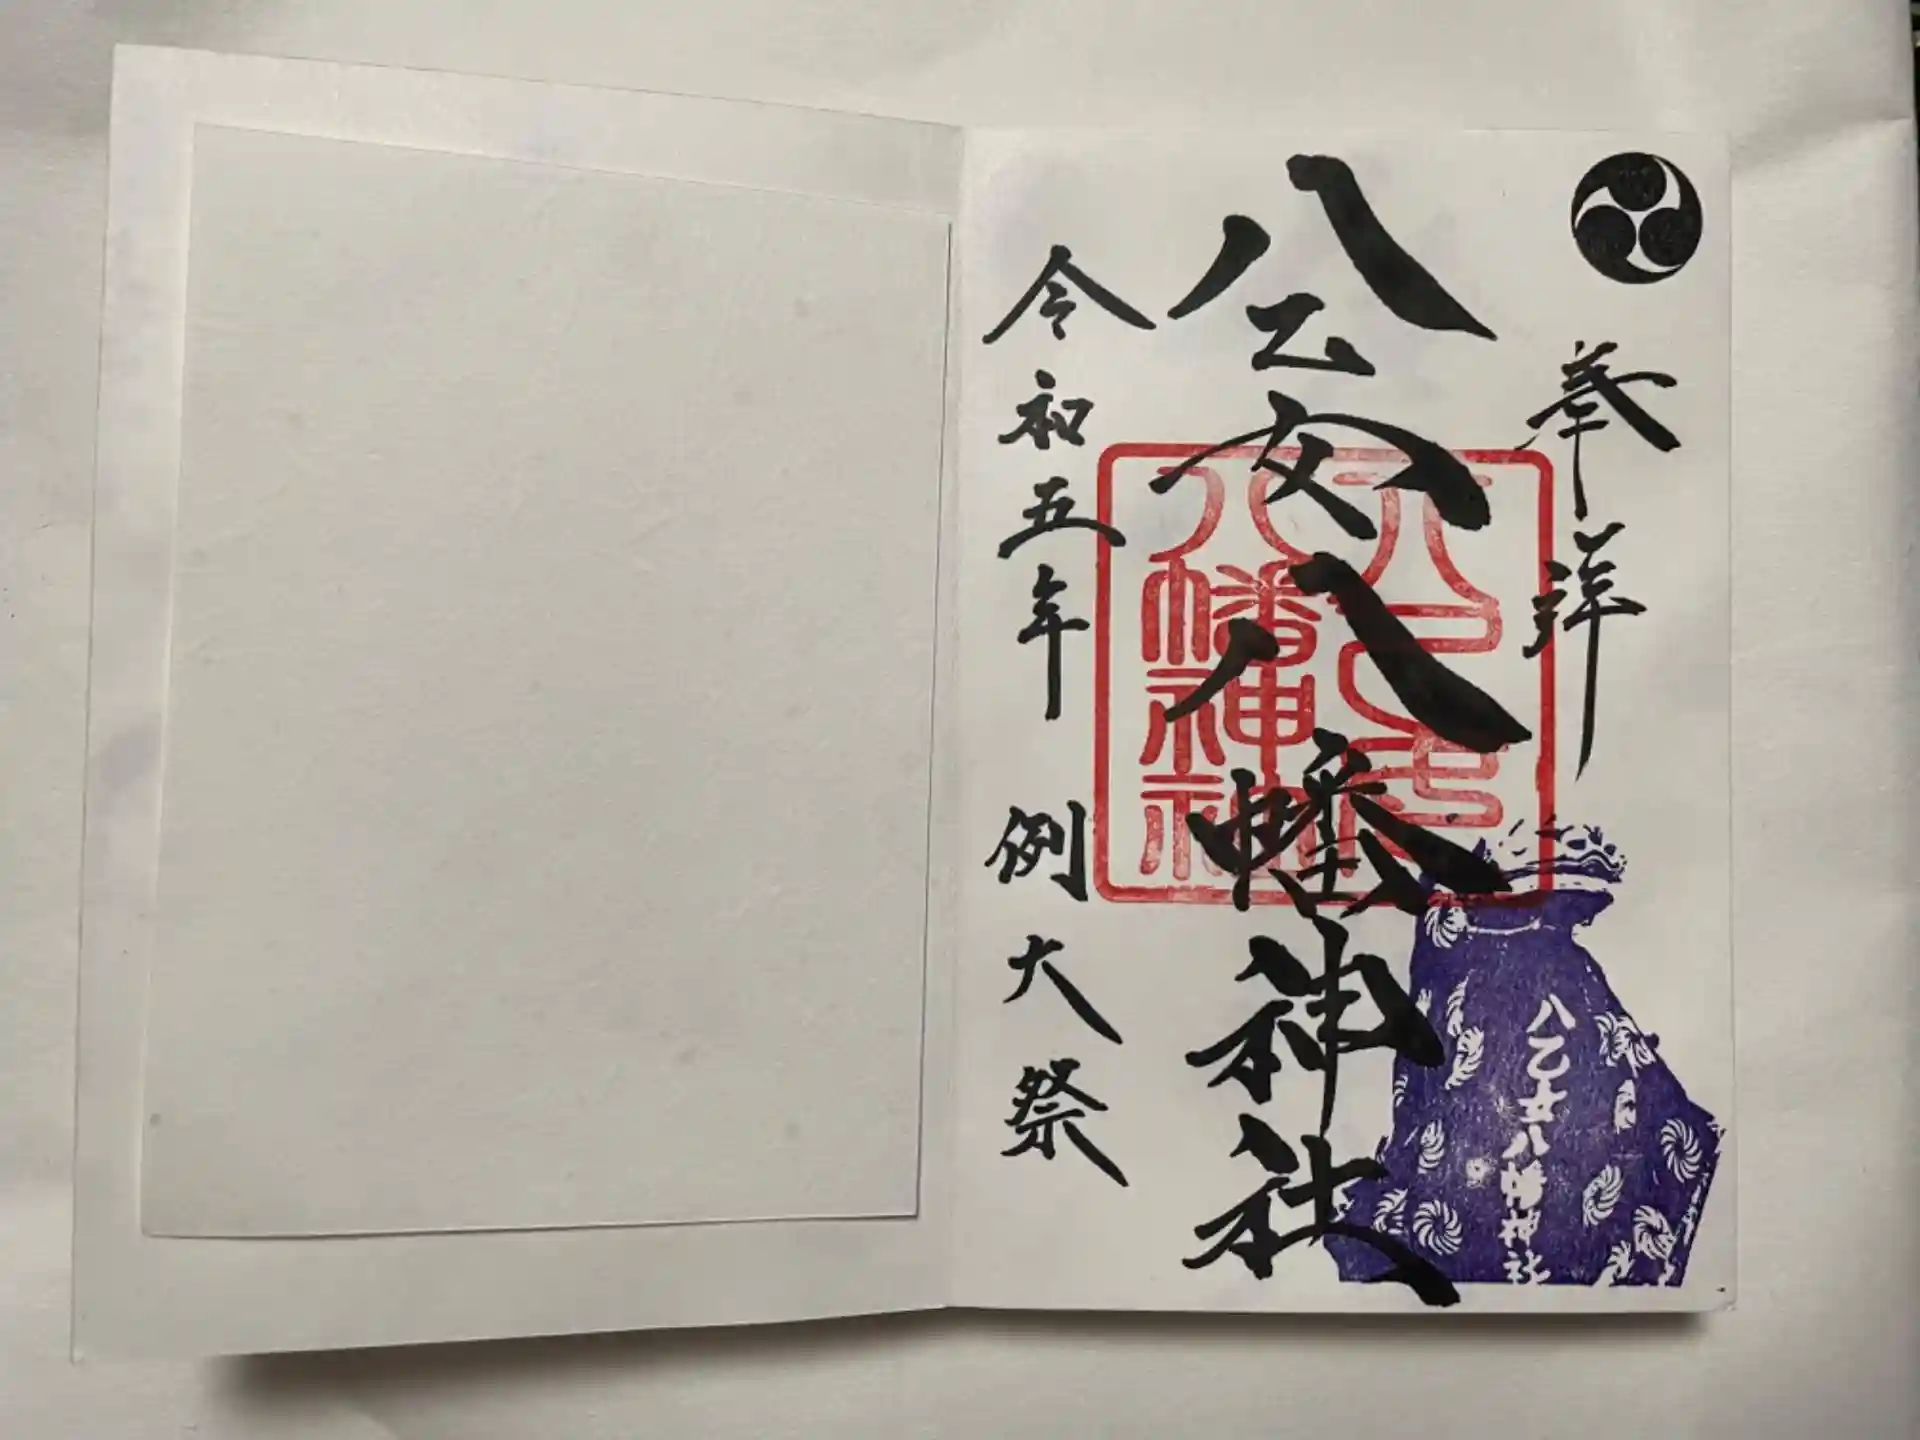 奉拝
八乙女八幡神社
令和五年 例大祭
八乙女
八幡神社
八乙女八幡神社